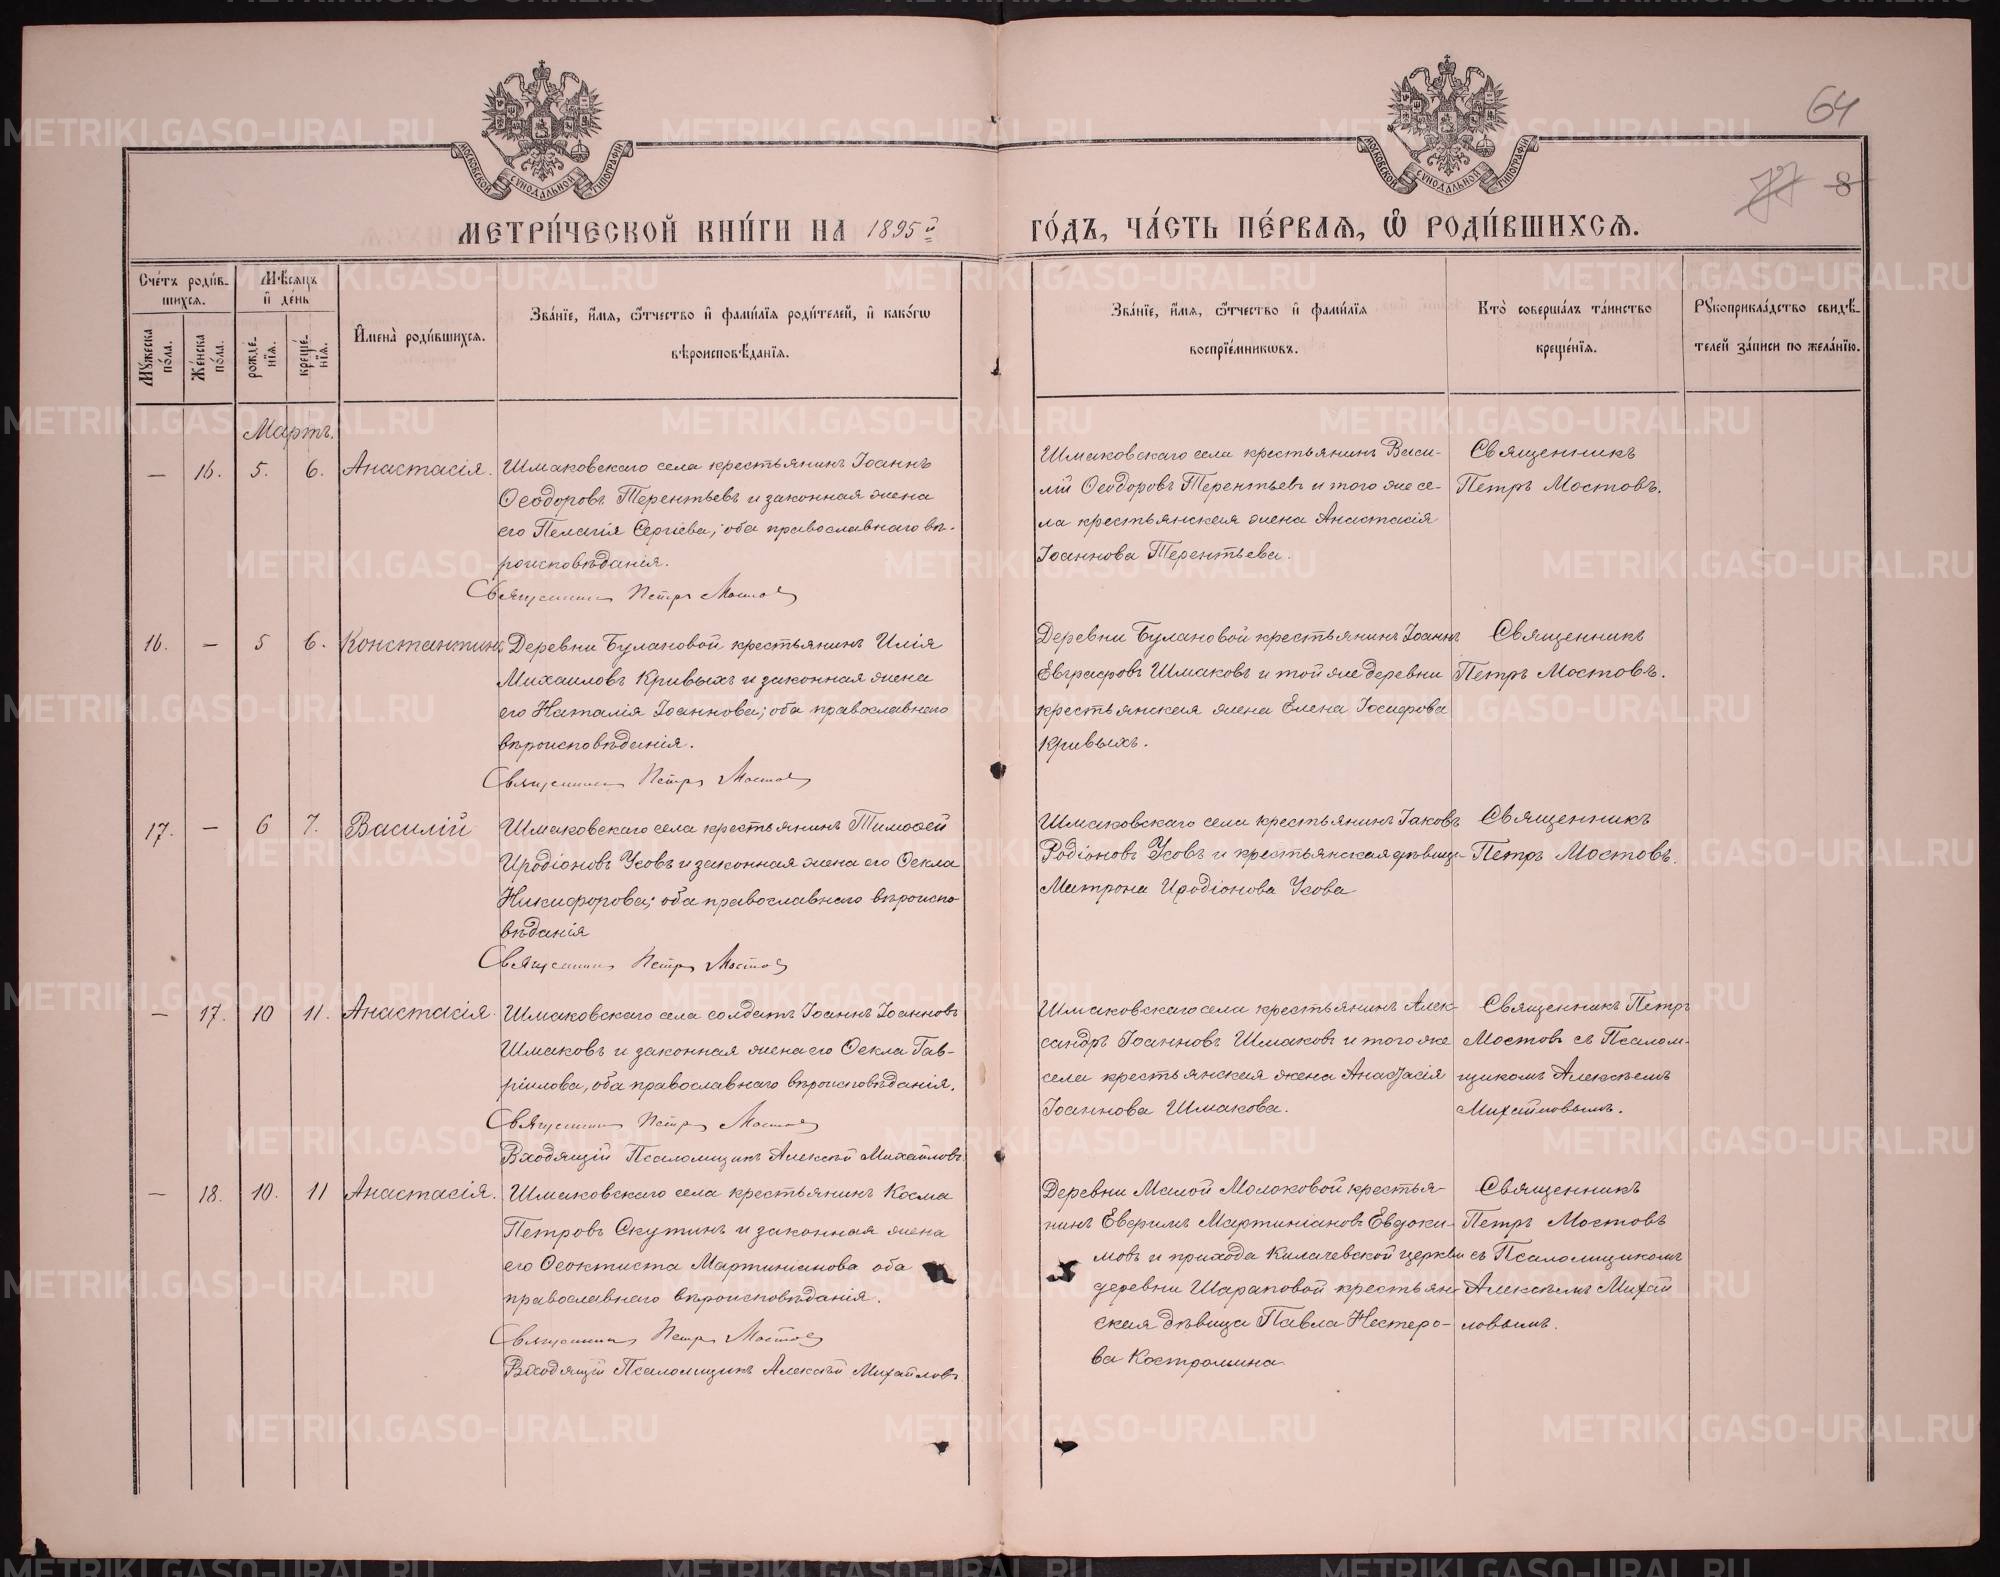 64
77 8
МОСКОВСКОЙ СУНОДАЛЬНОЙ ТИПОГРАФІИ
МОСКОВСКОЙ СУНОДАЛЬНОЙ ТИПОГРАФІИ
МЕТРИ́ЧЕСКОЙ КНИ́ГИ НА 1895й ГО́ДЪ, ЧА́СТЬ ПЕ́РВАѦ, Ѽ РОДИ́ВШИХСѦ.
Сче́тъ роди́в-
шихсѧ.
Мꙋ́жеска по́ла.
Же́нска по́ла.
Мѣ́сѧцъ
и҆ де́нь
рожде́-
нїѧ.
креще́-
нїѧ.
И҆мена̀ роди́вшихсѧ.
Зва́нїе, и҆́мѧ, ѻ҆́тчество и҆ фами́лїѧ роди́телей, и҆ како́гѡ
вѣроисповѣ́данїѧ.
Зва́нїе, и҆́мѧ, ѻ҆́тчество и҆ фами́лїѧ
воспрїе́мникѡвъ.
Кто̀ соверша́лъ та́инство
креще́нїѧ.
Рꙋкоприкла́дство свидѣ́-
телей за́писи по жела́нїю.
Мартъ.
— 16. 5. 6. Анастасія.
Шмаковскаго села крестьянинъ Іоаннъ
Ѳеодоровъ Терентьевъ и законная жена
его Пелагія Сергіева; оба православнаго вѣ-
роисповѣданія.
Священникъ Петръ Мостовъ
Шмаковскаго села крестьянинъ Васи-
лій Ѳеодоровъ Терентьевъ и того же се-
ла крестьянская жена Анастасія
Іоаннова Терентьева.
Священникъ
Петръ Мостовъ.
16. — 5 6. Константинъ
Деревни Булановой крестьянинъ Илія
Михаиловъ Кривыхъ и законная жена
его Наталія Іоаннова; оба православнаго
вѣроисповѣданія.
Священникъ Петръ Мостовъ
Деревни Булановой крестьянинъ Іоаннъ
Евграфовъ Шмаковъ и той же деревни
крестьянская жена Елена Іосифова
Кривыхъ.
Священникъ
Петръ Мостовъ.
17. — 6 7. Василій
Шмаковскаго села крестьянинъ Тимоѳей
Иродіоновъ Усовъ и законная жена его Ѳекла
Никифорова; оба православнаго вѣроиспо-
вѣданія
Священникъ Петръ Мостовъ
Шмаковскаго села крестьянинъ Іаковъ
Родіоновъ Усовъ и крестьянская дѣвица
Матрона Иродіонова Усова
Священникъ
Петръ Мостовъ.
— 17. 10 11. Анастасія.
Шмаковскаго села солдатъ Іоаннъ Іоанновъ
Шмаковъ и законная жена его Ѳекла Гав-
ріилова, оба православнаго вѣроисповѣданія.
Священникъ Петръ Мостовъ
Входящій Псаломщикъ Алексѣй Михайловъ
Шмаковскаго села крестьянинъ Алек-
сандръ Іоанновъ Шмаковъ и того же
села крестьянская жена Анастасія
Іоаннова Шмакова.
Священникъ Петръ
Мостовъ съ Псалом-
щикомъ Алексѣемъ
Михайловымъ.
— 18. 10. 11 Анастасія.
Шмаковскаго села крестьянинъ Косма
Петровъ Скутинъ и законная жена
его Ѳеоктиста Мартиніанова оба
православнаго вѣроисповѣданія.
Священникъ Петръ Мостовъ
Входящій Псаломщикъ Алексѣй Михайловъ
Деревни Малой Молоковой крестья-
нинъ Евфимъ Мартиніановъ Евдоки-
мовъ и прихода Килачевской церкви
деревни Шараповой крестьян-
ская дѣвица Павла Нестеро-
ва Костромина
Священникъ
Петръ Мостовъ
съ Псаломщикомъ
Алексѣемъ Михай
ловымъ.
METRIKI.GASO-URAL.RU